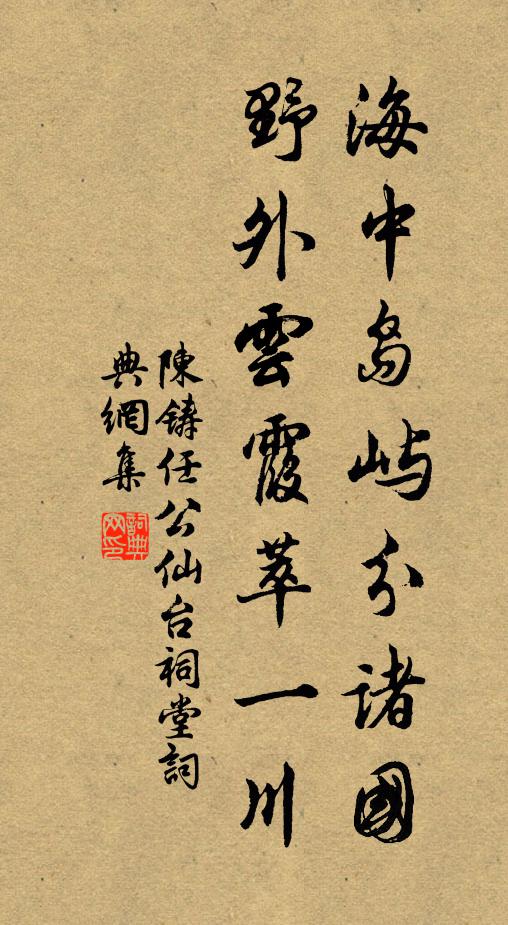 海中島嶼分諸國
野外雲霞萃一川
陳鑄任公仙台祠堂詞
典網集
詞典
网印